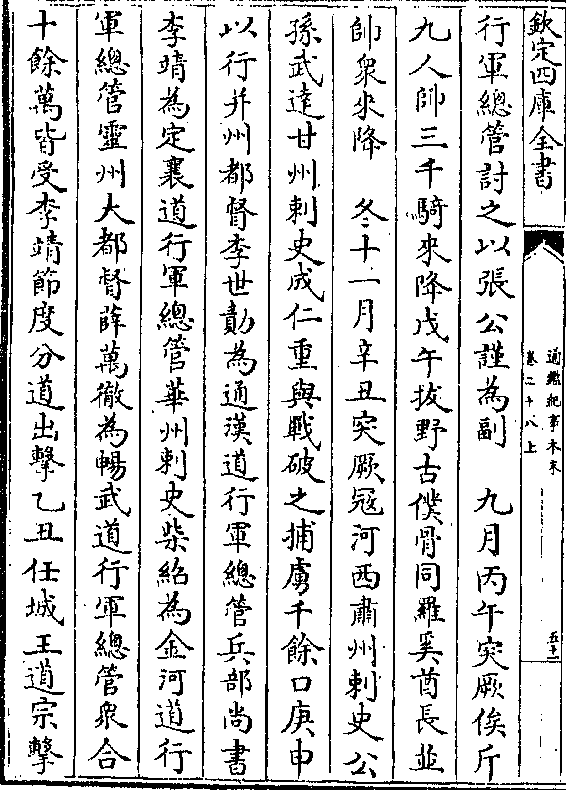 欽定四庫全書
通鑑紀事本末
卷二十八上
五十一
行軍總管討之以張公謹為副　九月丙午突厥俟斤
九人帥三千騎來降戊午拔野古僕骨同羅奚酋長並
帥衆來降　冬十一月辛丑突厥寇河西肅州刺史公
孫武達甘州刺史成仁重與戰破之捕虜千餘口庚申
以行并州都督李世勣為通漢道行軍總管兵部尚書
李靖為定襄道行軍總管華州刺史柴紹為金河道行
軍總管靈州大都督薛萬徹為暢武道行軍總管衆合
十餘萬皆受李靖節度分道出擊乙丑任城王道宗擊